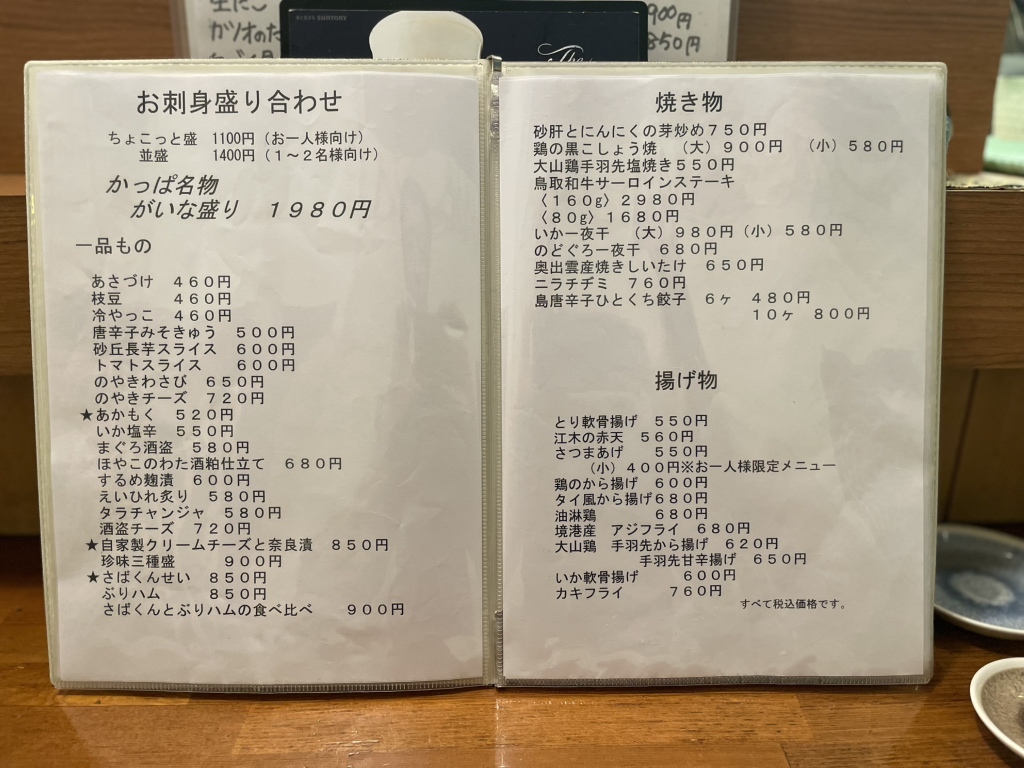 カツオのた
SUNTORY
The
900円
850円
お刺身盛り合わせ
ちょこっと盛 1100円（お一人様向け）
並盛 1400円（１～２名様向け）
かっぱ名物
がいな盛り １９８０円
一品もの
あさづけ ４６０円
枝豆 ４６０円
冷やっこ ４６０円
唐辛子みそきゅう ５００円
砂丘長芋スライス ６００円
トマトスライス ６００円
のやきわさび ６５０円
のやきチーズ ７２０円
★あかもく ５２０円
いか塩辛 ５５０円
まぐろ酒盗 ５８０円
ほやこのわた酒粕仕立て ６８０円
するめ麹漬 ６００円
えいひれ炙り ５８０円
タラチャンジャ ５８０円
酒盗チーズ ７２０円
★自家製クリームチーズと奈良漬 ８５０円
珍味三種盛 ９００円
★さばくんせい ８５０円
ぶりハム ８５０円
さばくんとぶりハムの食べ比べ ９００円
焼き物
砂肝とにんにくの芽炒め７５０円
鶏の黒こしょう焼 （大）９００円 （小）５８０円
大山鶏手羽先塩焼き５５０円
鳥取和牛サーロインステーキ
〈１６０g〉２９８０円
〈８０g〉１６８０円
いか一夜干 （大）９８０円（小）５８０円
のどぐろ一夜干 ６８０円
奥出雲産焼きしいたけ ６５０円
ニラチヂミ ７６０円
島唐辛子ひとくち餃子 ６ヶ ４８０円
１０ヶ ８００円
揚げ物
とり軟骨揚げ ５５０円
江木の赤天 ５６０円
さつまあげ ５５０円
（小）４００円※お一人様限定メニュー
鶏のから揚げ ６００円
タイ風から揚げ６８０円
油淋鶏 ６８０円
境港産 アジフライ ６８０円
大山鶏 手羽先から揚げ ６２０円
手羽先甘辛揚げ ６５０円
いか軟骨揚げ ６００円
カキフライ ７６０円
すべて税込価格です。